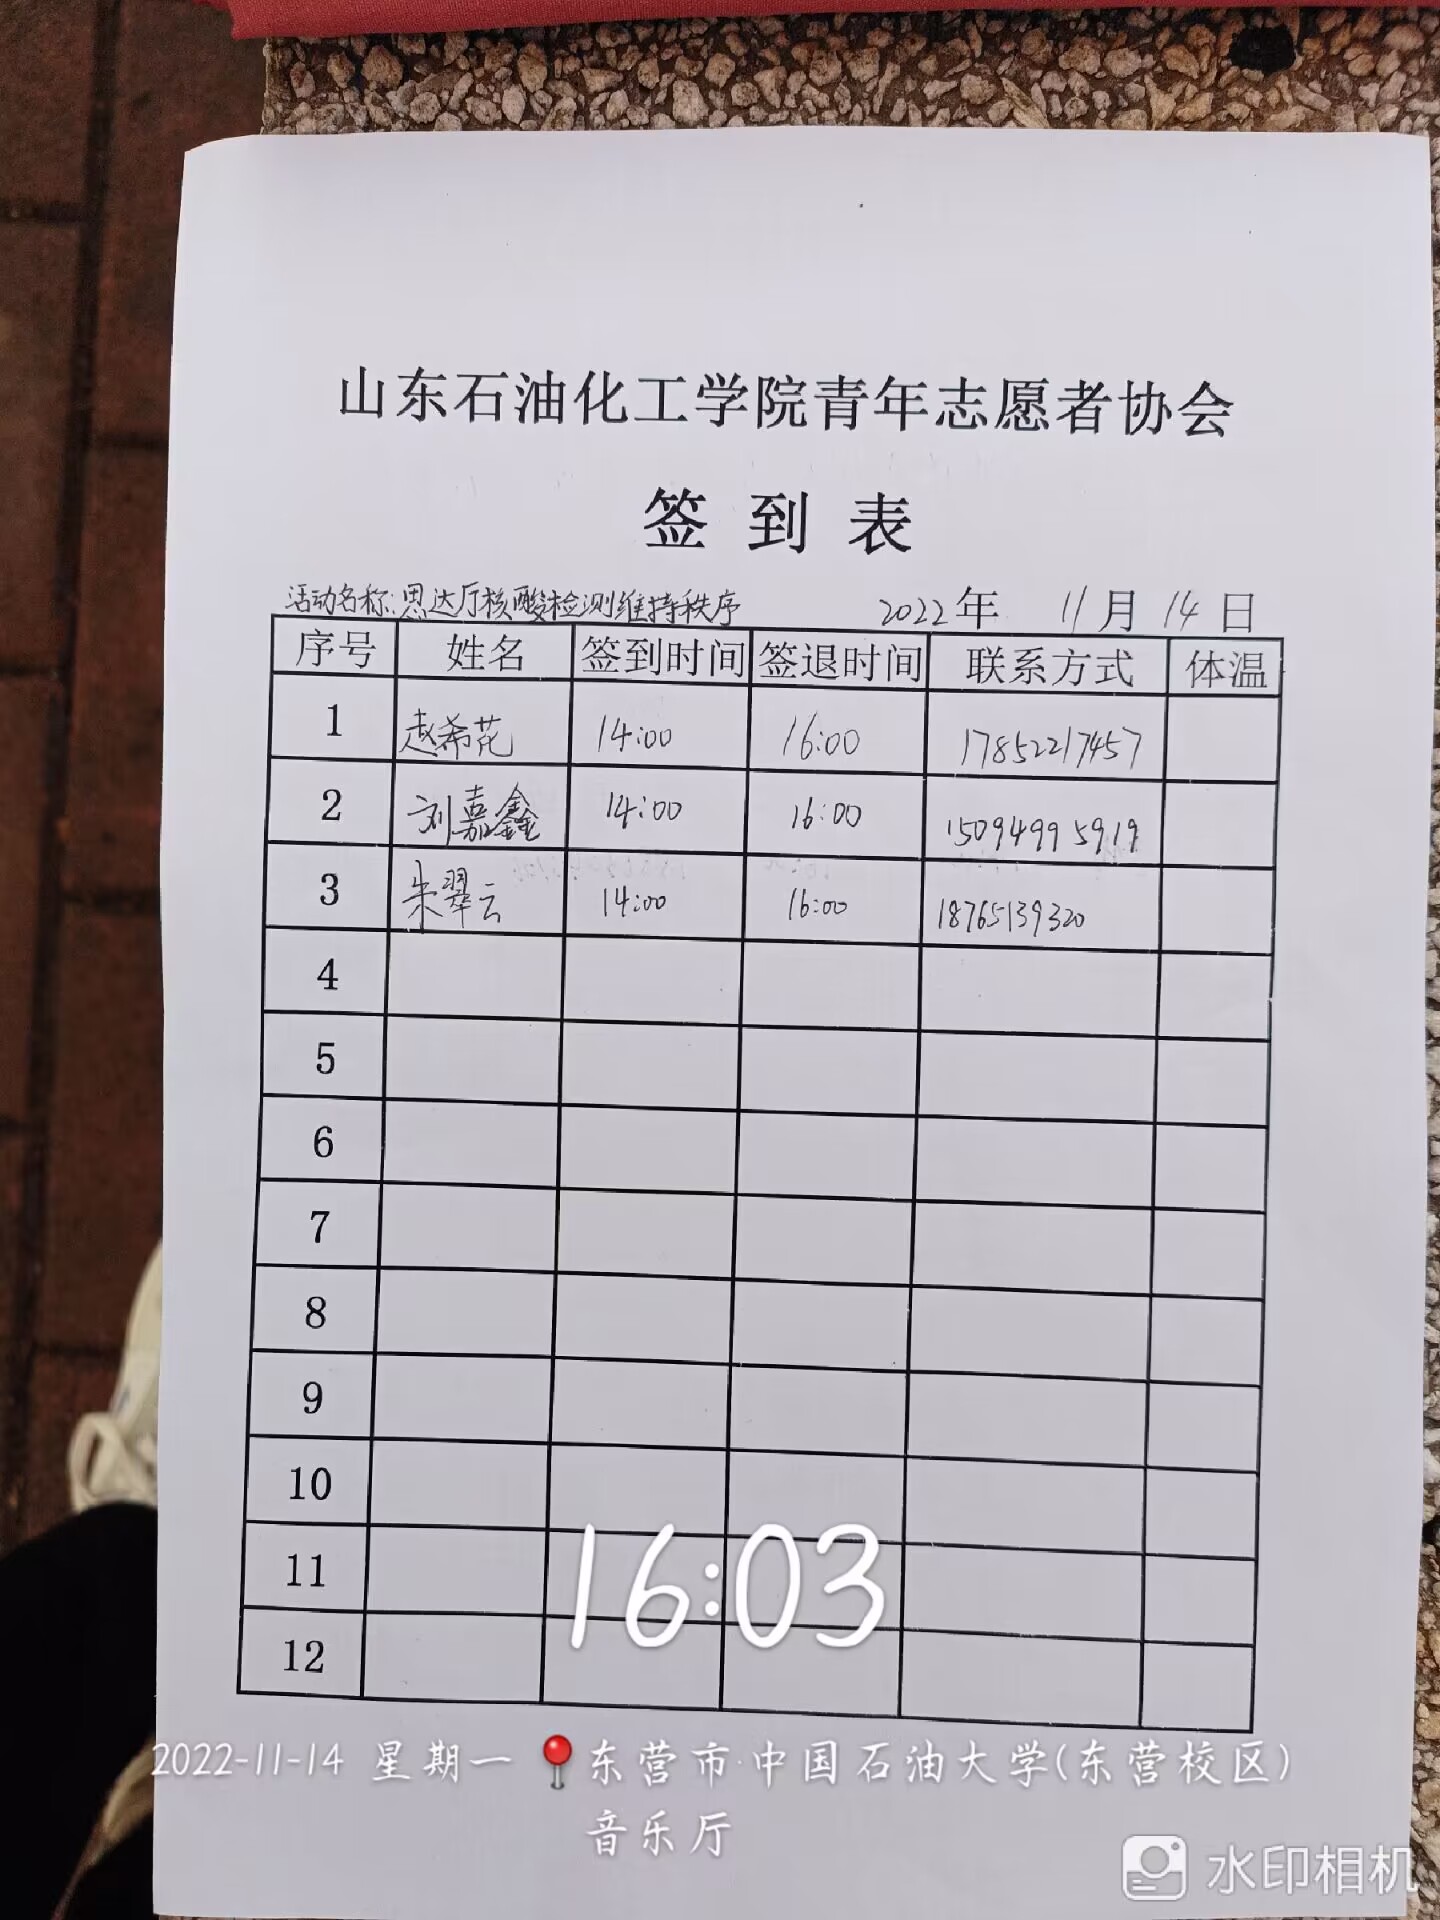 山东石油化工学院青年志愿者协会
签到表
活动名称:思达厅核酸检测维持秩序 2022年 11月 14日
序号 姓名 签到时间 签退时间 联系方式 体温
1 赵希花 14:00 16:00 17852217457
2 刘嘉鑫 14:00 16:00 15094995919
3 朱翠云 14:00 16:00 18765139320
4
5
6
7
8
9
10
11
12
16:03
2022-11-14 星期一 东营市·中国石油大学(东营校区)
音乐厅
水印相机